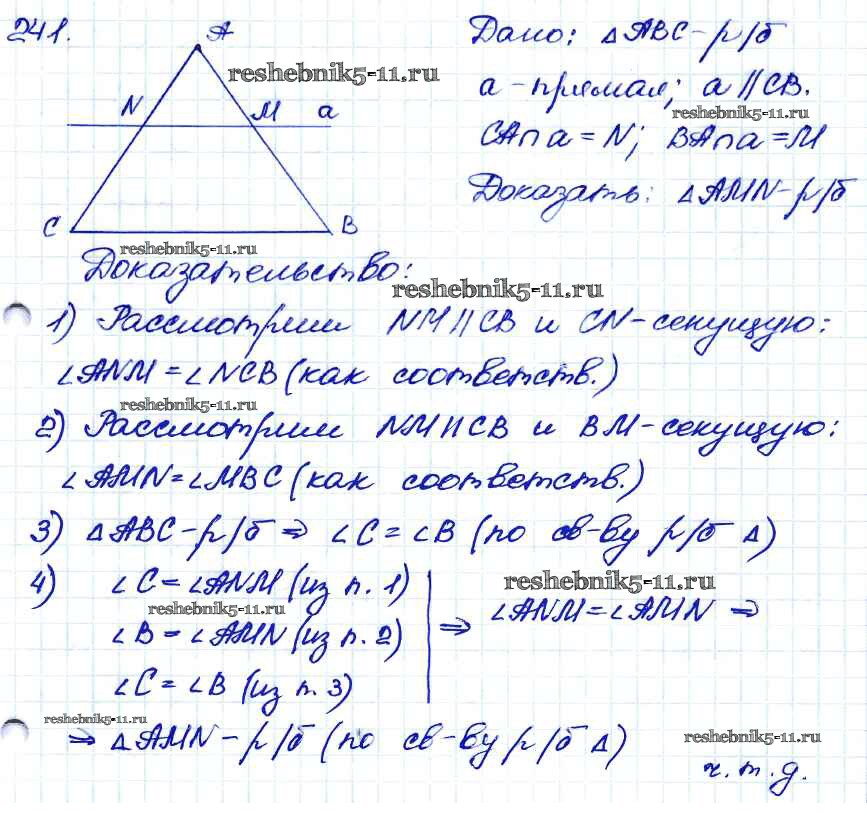 241.
A
N
M
a
C
B
Дано: △ABC - р/б
a - прямая; a || CB.
CA∩a = N; BA∩a = M
Доказать: △AMN - р/б
Доказательство:
1) Рассмотрим NM || CB и CN - секущую:
∠ANM = ∠NCB (как соответств.)
2) Рассмотрим NM || CB и BM - секущую:
∠AMN = ∠MBC (как соответств.)
3) △ABC - р/б ⇒ ∠C = ∠B (по св-ву р/б △)
4) ∠C = ∠ANM (из п. 1)
∠B = ∠AMN (из п. 2)
∠C = ∠B (из п. 3)
⇒ ∠ANM = ∠AMN ⇒
⇒ △AMN - р/б (по св-ву р/б △)
ч.т.д.
reshebnik5-11.ru
reshebnik5-11.ru
reshebnik5-11.ru
reshebnik5-11.ru
reshebnik5-11.ru
reshebnik5-11.ru
reshebnik5-11.ru
reshebnik5-11.ru
reshebnik5-11.ru